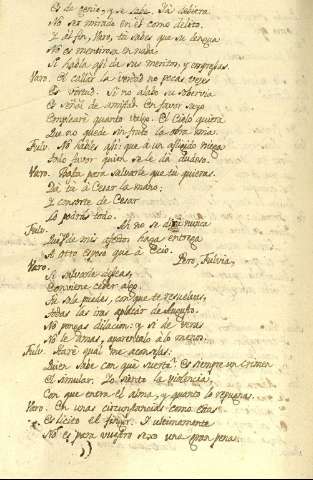 Es de cenio, y se sabe. Ya debiera
No ser mirada en el como delito.
Y al fin, Varo, tu sabes que su lengua
No es mentirosa en nada.
Si habla asi de sus meritos, y empresas.
Varo. El callar la verdad no pocas vezes
Es virtud. Si no alabo su sobervia
Es señal de amistad. En favor suyo
Empleare quanto valgo. El Cielo quiera
Que no quede sin fruto la obra mia.
Fulv. No hables asi: que a un afligido niega
Todo favor quien se le da dudoso.
Varo. Basta para salvarle que tu quieras.
Da tu a Cesar la mano:
Y consorte de Cesar
Lo podras todo.
Fulv. Ah no se diga nunca
Que de mis afectos haga entrega
A otro esposo que a Ecio.
Varo. Pero, Fulvia,
Si salvarle deseas,
Conviene ceder algo.
Tu sola puedes, conque te resuelvas,
Todas las iras aplacar de Augusto.
No pongas dilacion: y si de veras
No le amas, aparentalo a lo menos.
Fulv. Hare qual me aconsejas.
Quien sabe con que suerte. Es siempre un crimen
El simular. Yo siento la violencia,
Con que entra el alma, y quanto lo repugna.
Varo. En unas circunstancias como estas
Es licito el fingir. Y ultimamente
No es para vuestro sexo una gran pena.